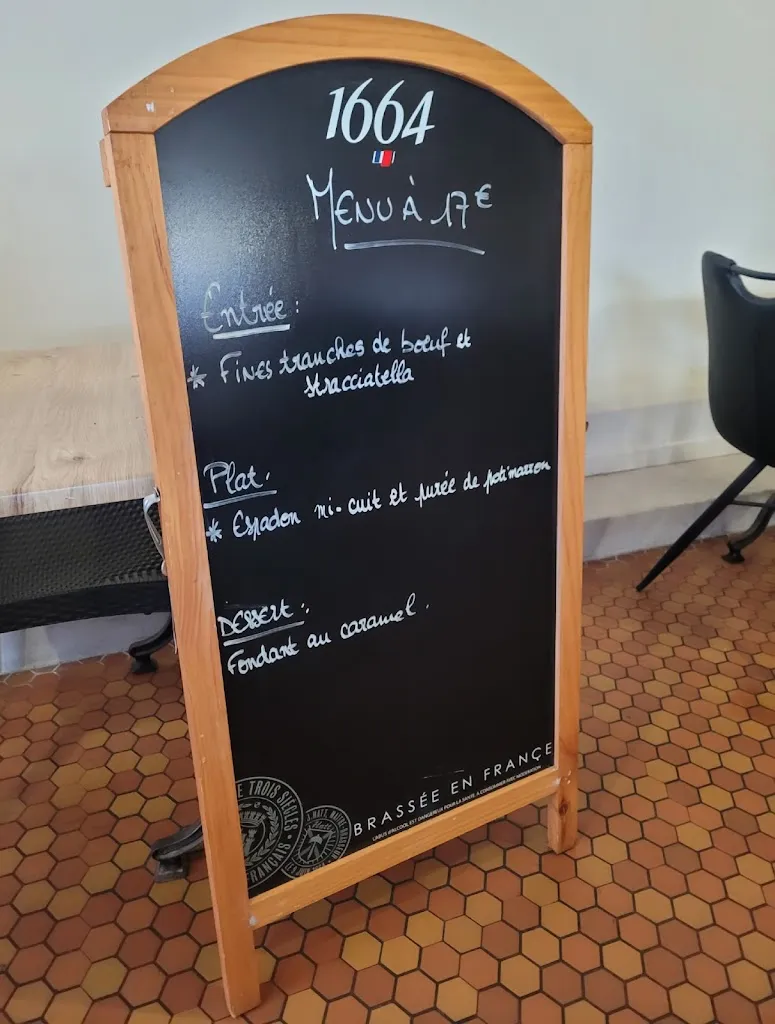 1664
MENU À 17€
Entrée :
* FINES tranches de boeuf et
stracciatella
Plat :
* Espadon mi-cuit et purée de potimarron
DESSERT :
Fondant au caramel.
BRASSÉE EN FRANÇE
L'ABUS D'ALCOOL EST DANGEREUX POUR LA SANTÉ, À CONSOMMER AVEC MODÉRATION
E TROIS SIÈCLES
FRANÇAIS